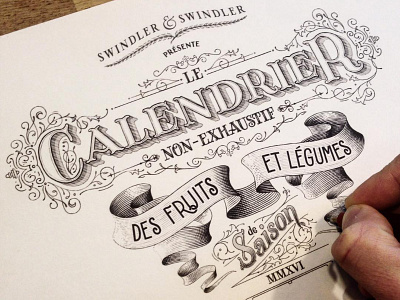 SWINDLER & SWINDLER
PRÉSENTE
LE
CALENDRIER
NON-EXHAUSTIF
DES FRUITS ET LÉGUMES
de
Saison
MMXVI